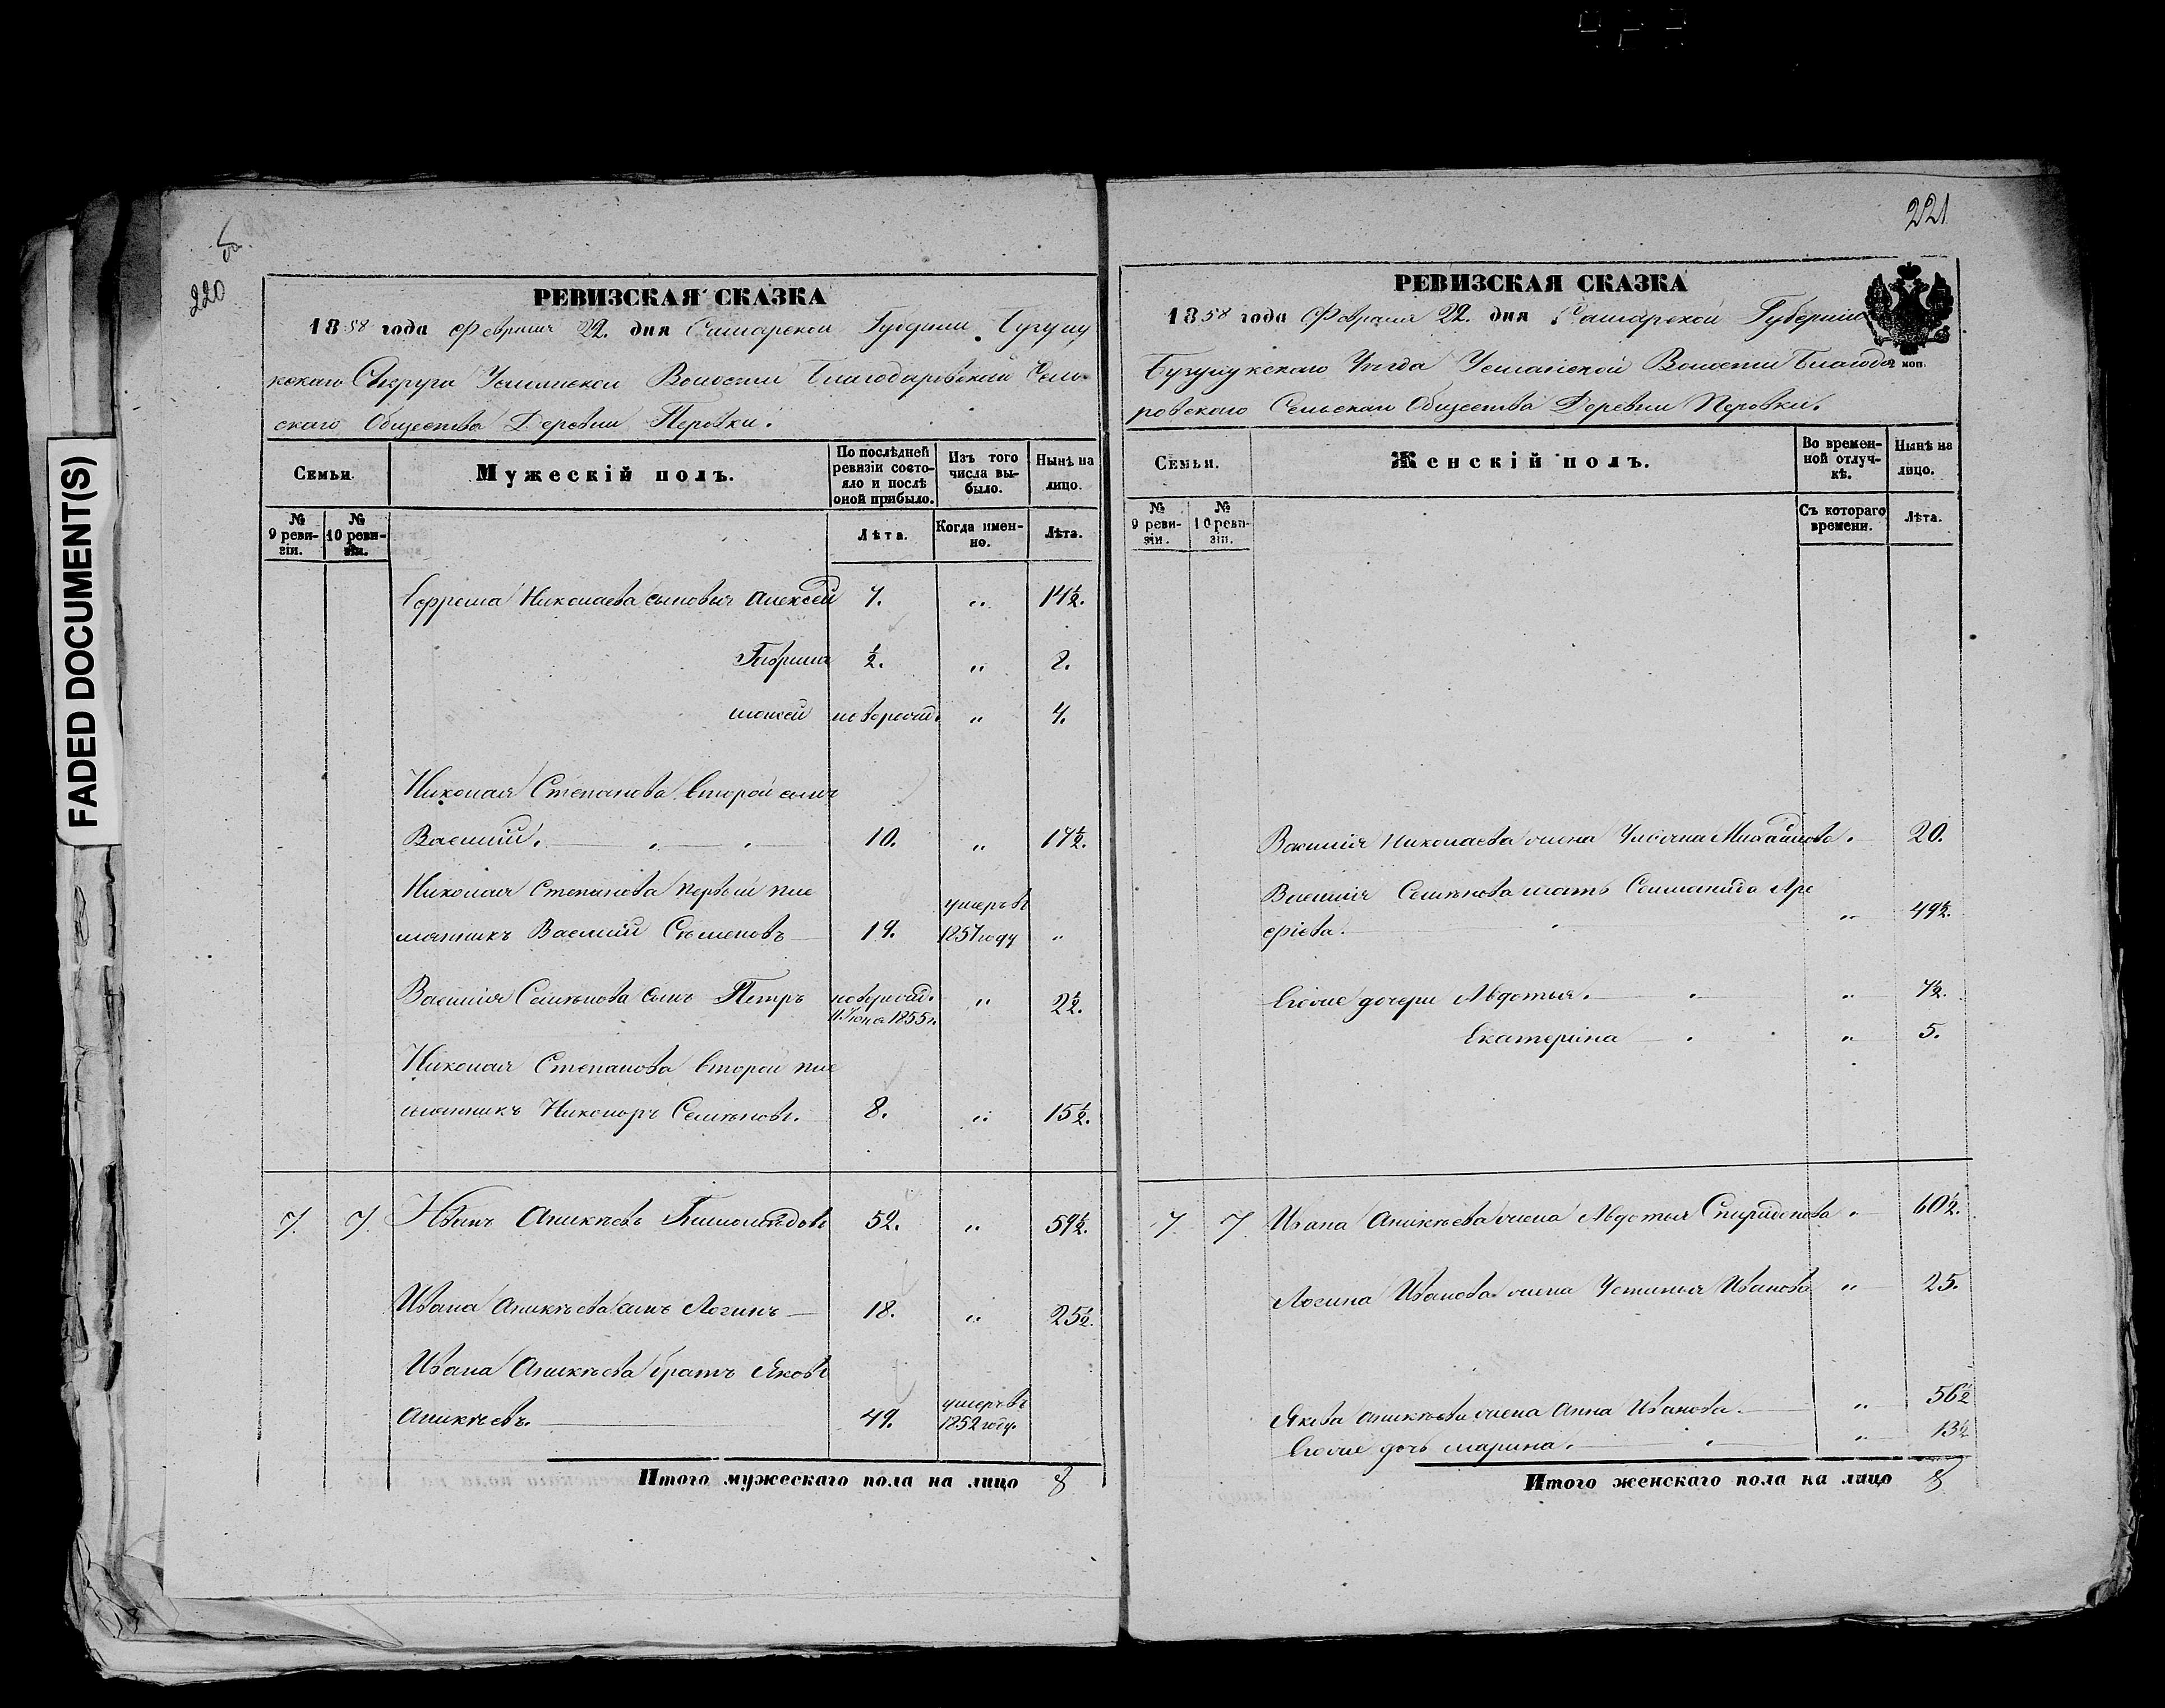 FADED DOCUMENT(S)
220
РЕВИЗСКАЯ СКАЗКА
1858 года Февраля 22. дня Самарской Губернии Бугуру
Округа Волости Благодаровскаго Сель
скаго Общества Деревни Перовки.
Семьи.
Мужескій полъ.
По послѣдней ревизіи состояло и послѣ оной прибыло.
Изъ того числа выбыло.
Нынѣ на лицо.
№ 9 ревизіи.
№ 10 ревизіи.
Лѣта.
Когда именно.
Лѣта.
Ефрема Николаева сыновья Алексей 7. " 14½.
Гаврила ½. " 8.
Моисей новорожд. " 4.
Николая Степанова второй сынъ
Василий. 10. " 17½.
Николая Степанова первый пле
мянникъ Василий Семеновъ 19. умеръ въ 1857 году "
Василия Семѣнова сынъ Петръ новорожд. 11. Июня 1855 г. " 2½.
Николая Степанова второй пле
мянникъ Никоноръ Семѣновъ. 8. " 15½.
7. 7. Иванъ Аникѣевъ 52. " 59½.
Ивана Аникѣева сынъ Логинъ 18. " 25½.
Ивана Аникѣева братъ Яковъ
Аникѣевъ. 49. умеръ въ 1852 году.
Итого мужескаго пола на лицо 8
221
РЕВИЗСКАЯ СКАЗКА
1858 года Февраля 22. дня Самарской Губернии
Уѣзда Волости Благода
ровскаго Сельскаго Общества Деревни Перовки.
коп.
Семьи.
Женскій полъ.
Во временной отлучкѣ.
Нынѣ на лицо.
№ 9 ревизіи.
№ 10 ревизіи.
Съ котораго времени.
Лѣта.
Василия Николаева жена Ульяна Михайлова. 20.
Василия Семѣнова мать Соломанида Аре
фіева. " 49½.
Еговые дочери Авдотья. " 7½.
Екатерина " 5.
7 7 Ивана Аникѣева жена Авдотья Спиридонова " 60½.
Логина Иванова жена Устинья Иванова " 25.
Якова Аникѣева жена Анна Иванова. " 56½
Еговые дочь Марина. " 13½
Итого женскаго пола на лицо 8